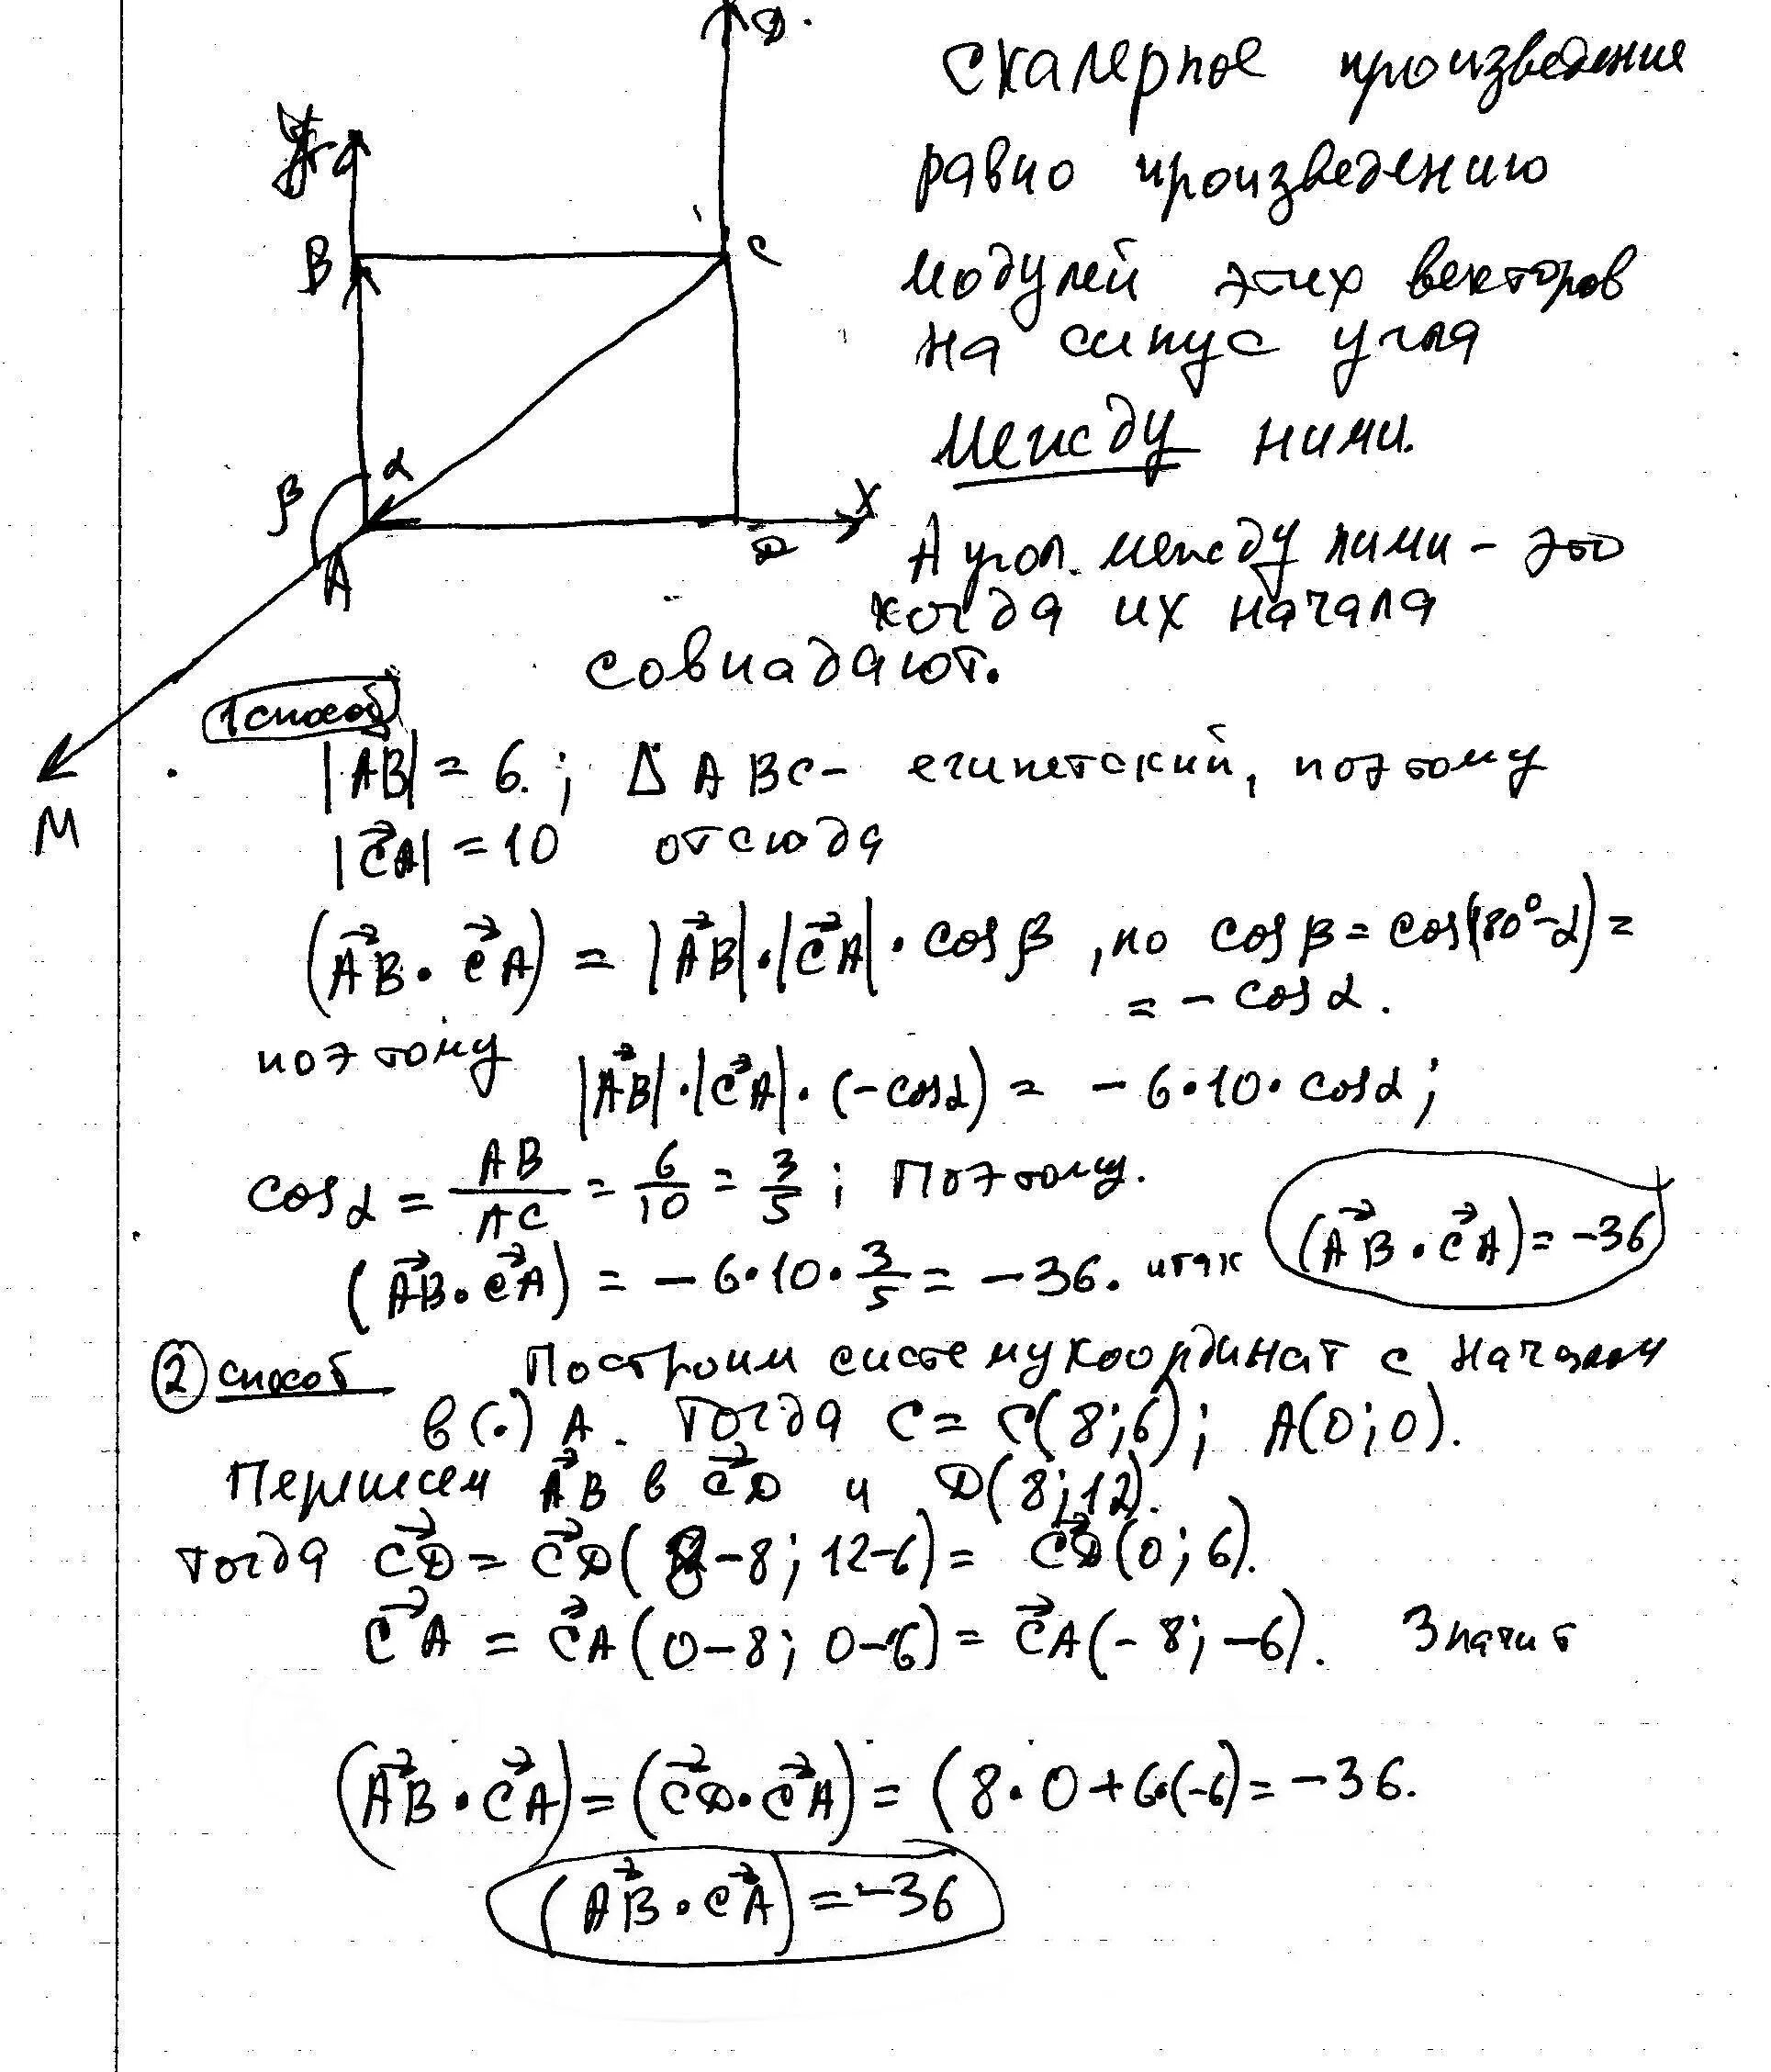 У
Д.
В
С
α
β
А
Д
Х
М
скалерное произведение
равно произведению
модулей этих векторов
на синус угла
между ними.
А угол. между ними - это
когда их начала
совпадают.
1 способ
|АВ| = 6. ; Δ АВС - египетский, поэтому
|СА| = 10 отсюда
(АВ · СА) = |АВ| · |СА| · cos β , но cos β = cos(180° - α) =
= - cos α.
поэтому
|АВ| · |СА| · (-cos α) = - 6 · 10 · cos α ;
cos α = АВ/АС = 6/10 = 3/5 ; Поэтому.
(АВ · СА) = - 6 · 10 · 3/5 = - 36. итак (АВ · СА) = -36
2 способ Построим систему координат с началом
в (·) А. Тогда С = С(8; 6) ; А(0; 0).
Перенесем АВ в СД и Д(8; 12).
тогда СД = СД(8 - 8; 12 - 6) = СД(0; 6).
СА = СА(0 - 8; 0 - 6) = СА(- 8; -6). Значит
(АВ · СА) = (СД · СА) = (8 · 0 + 6·(-6) = -36.
(АВ · СА) = -36